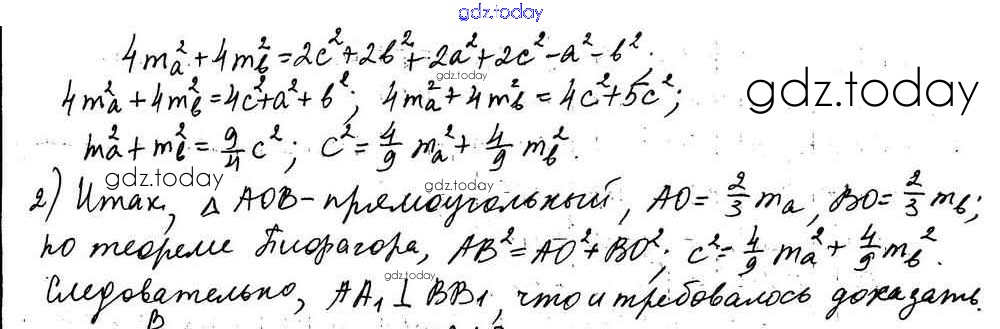 gdz.today
4m_a² + 4m_b² = 2c² + 2b² + 2a² + 2c² - a² - b²;
gdz.today
4m_a² + 4m_b² = 4c² + a² + b²; 4m_a² + 4m_b² = 4c² + 5c²;
gdz.today
m_a² + m_b² = 9/4 c²; c² = 4/9 m_a² + 4/9 m_b².
gdz.today
gdz.today
2) Итак, △ AOB - прямоугольный, AO = 2/3 m_a, BO = 2/3 m_b;
по теореме Пифагора, AB² = AO² + BO²; c² = 4/9 m_a² + 4/9 m_b².
gdz.today
Следовательно, AA₁ ⊥ BB₁, что и требовалось доказать.
B